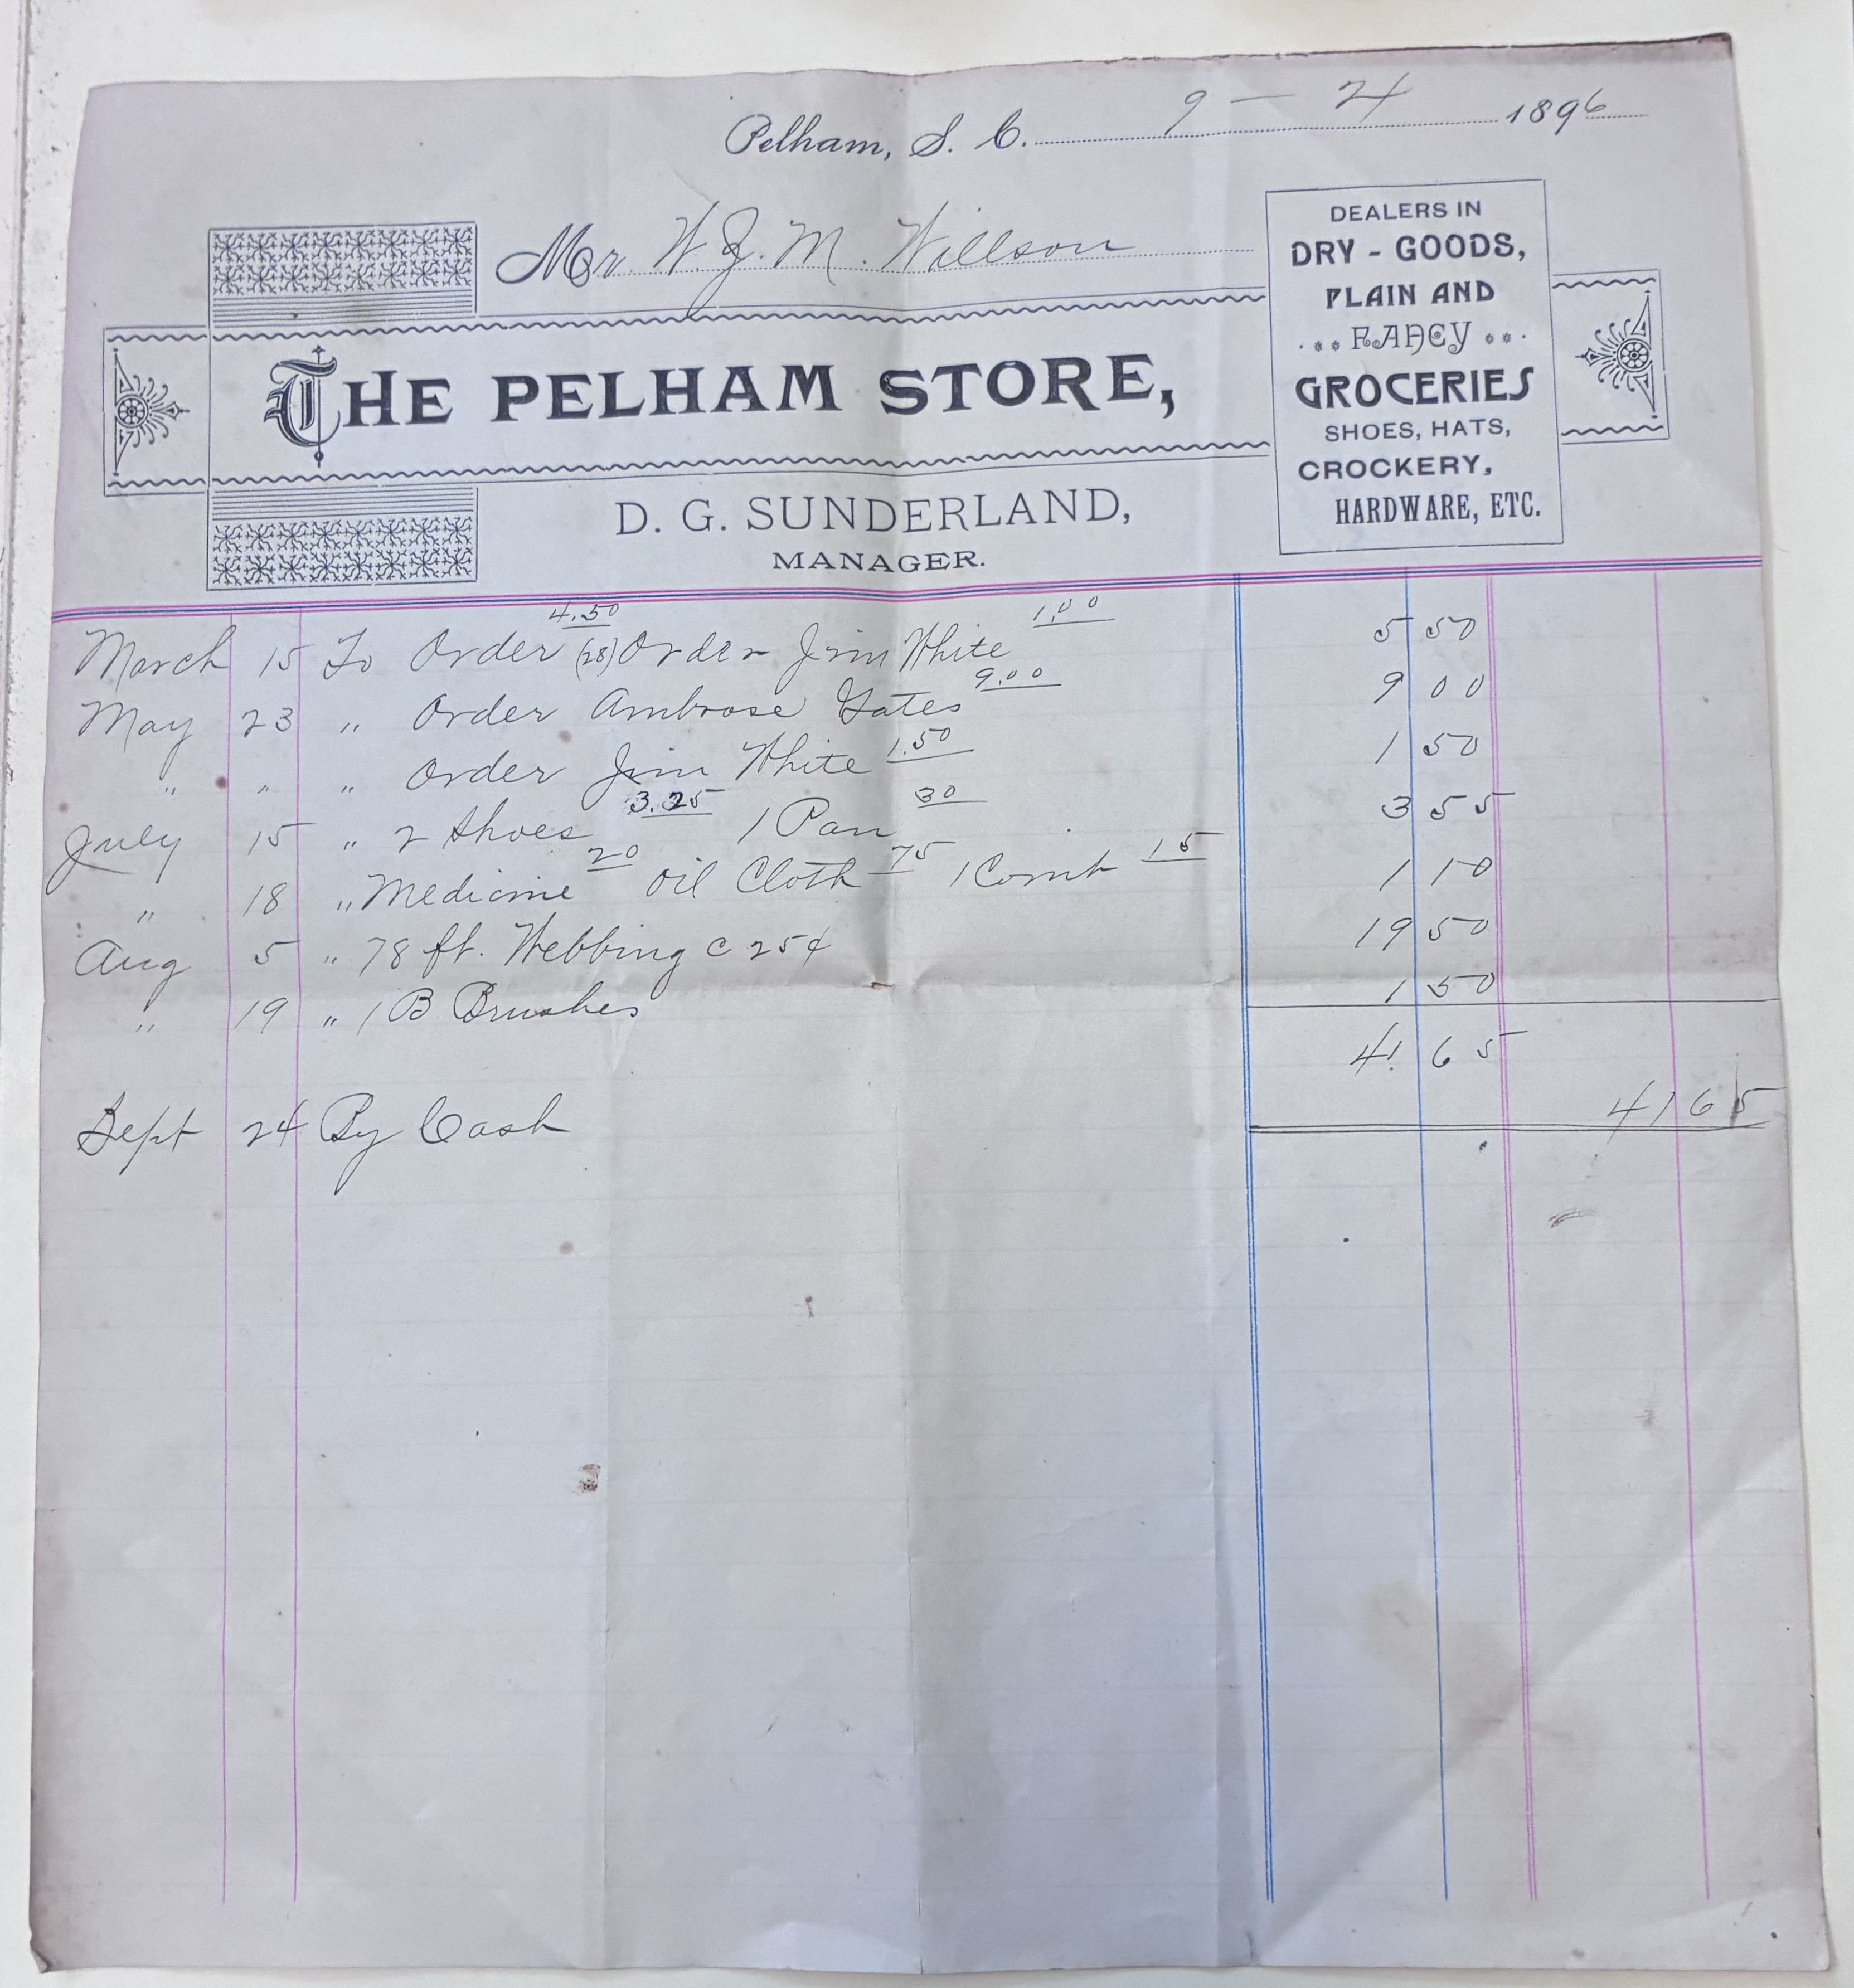 Pelham, S. C. 9 — 24 1896
Mr W. J. M. Willson
DEALERS IN
DRY - GOODS,
PLAIN AND
FANCY
GROCERIES
SHOES, HATS,
CROCKERY,
HARDWARE, ETC.
THE PELHAM STORE,
D. G. SUNDERLAND,
MANAGER.
March 15 To Order 4.50 (28) Order Jim White 1.00 5 50
May 23 " Order Ambrose Yates 9.00 9 00
" " " Order Jim White 1.50 1 50
July 15 " 2 Shoes 3.25 1 Pan 30 3 55
" 18 " Medicine 20 Oil Cloth 75 1 Comb 15 1 10
Aug 5 " 78 ft. Webbing c 25¢ 19 50
" 19 " 1 B Brushes 1 50
41 65
Sept 24 By Cash 41 65